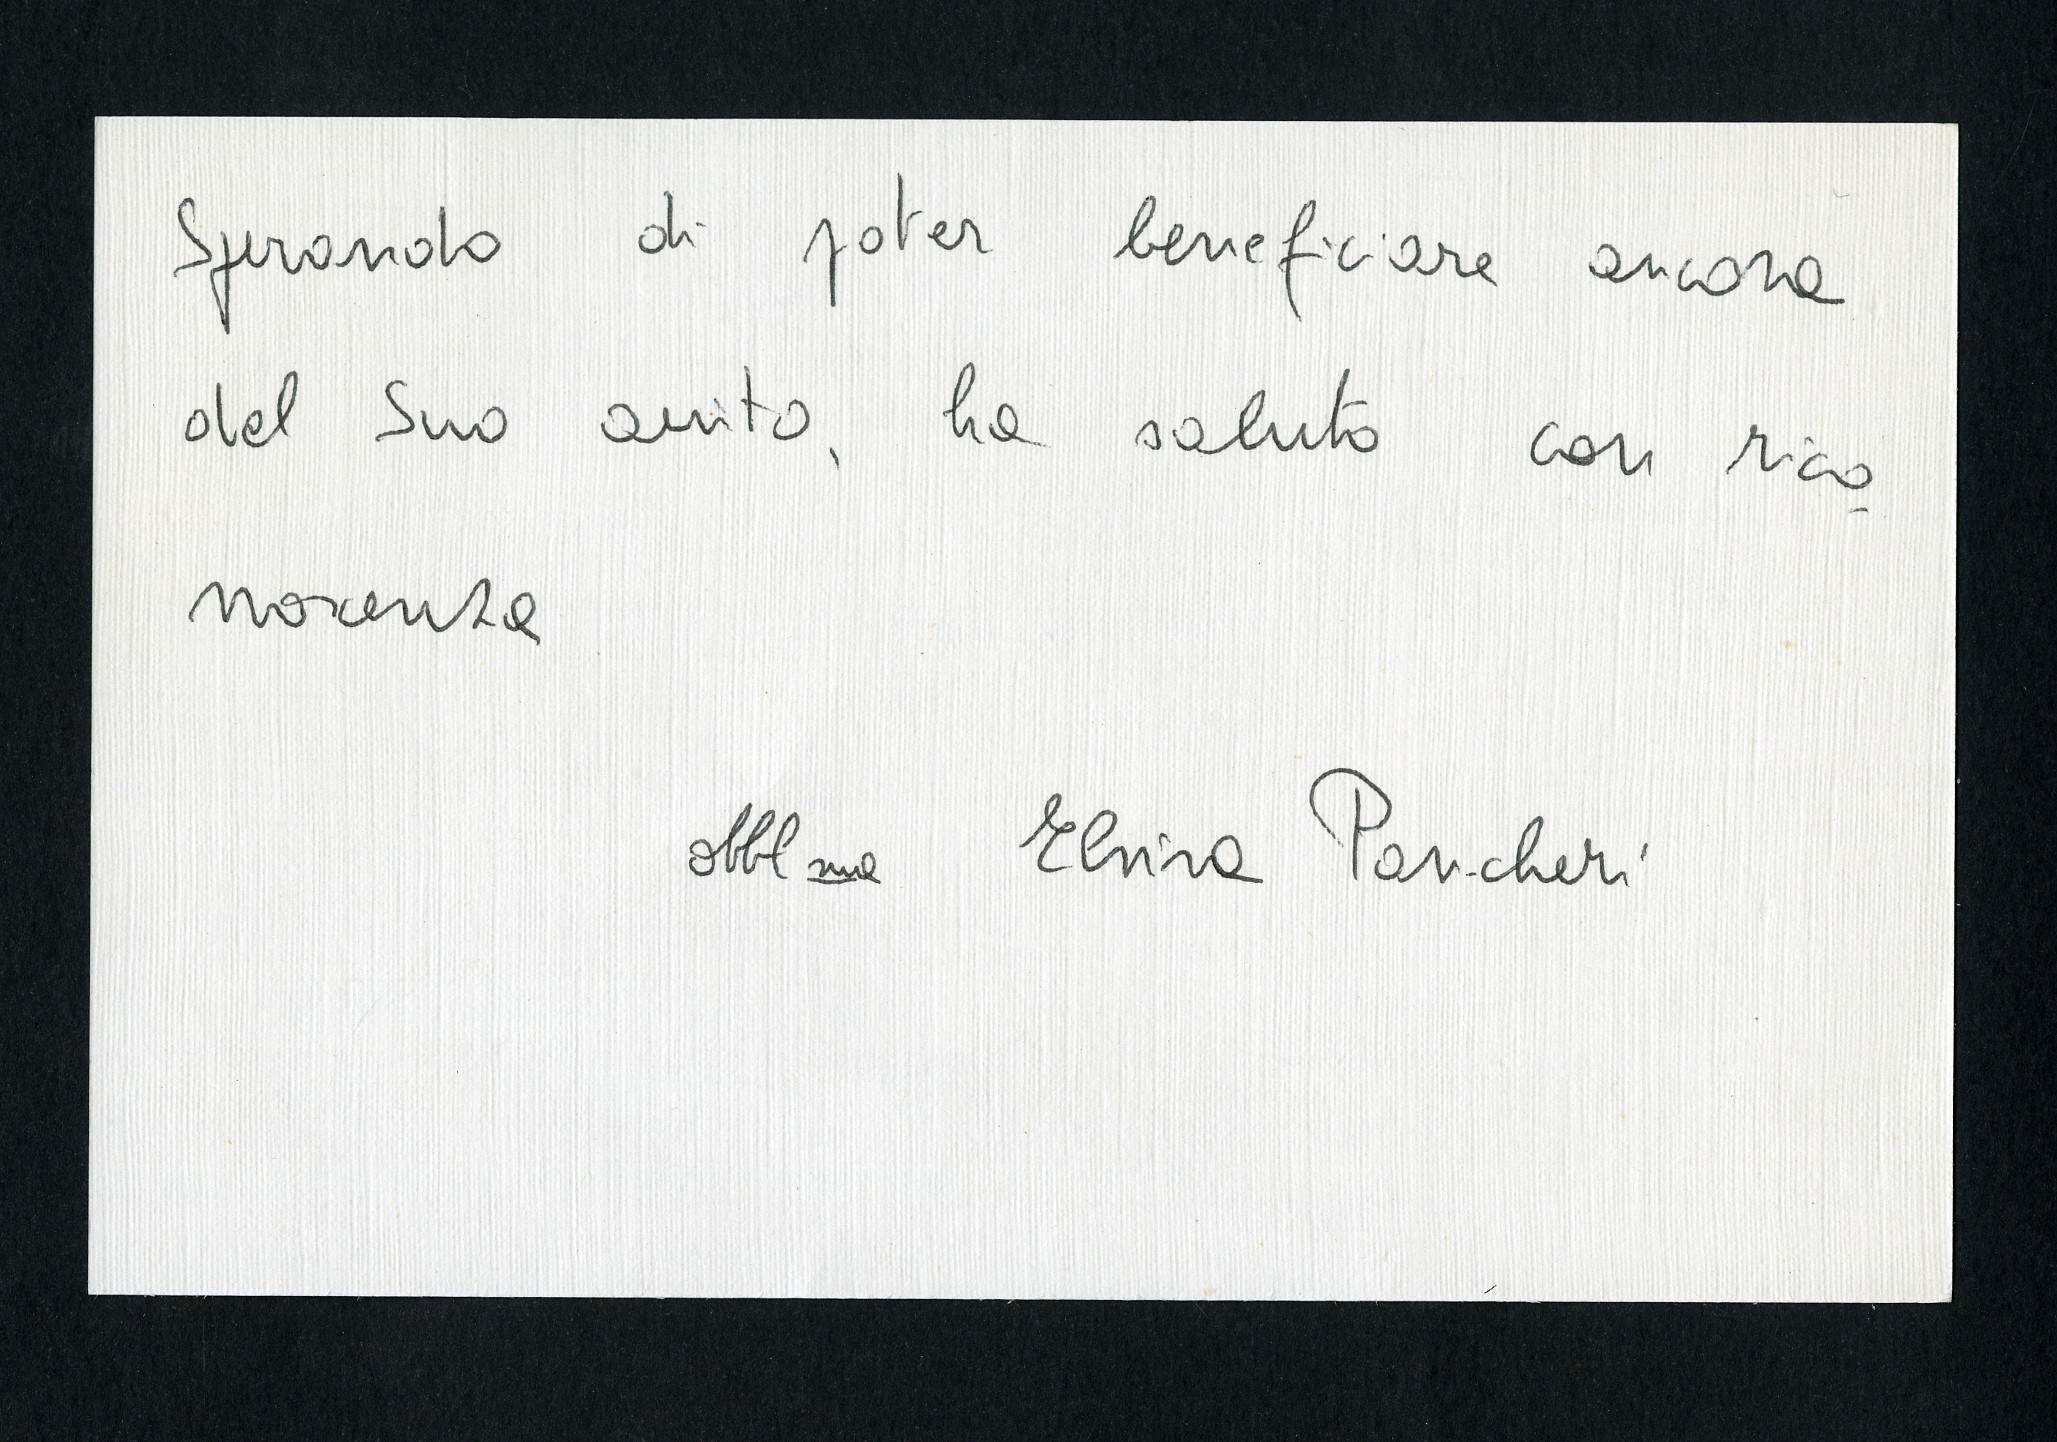 Sperando di poter beneficiare ancora
del Suo aiuto, La saluto con rico
noscenza
obbl ma Elvira Pancheri